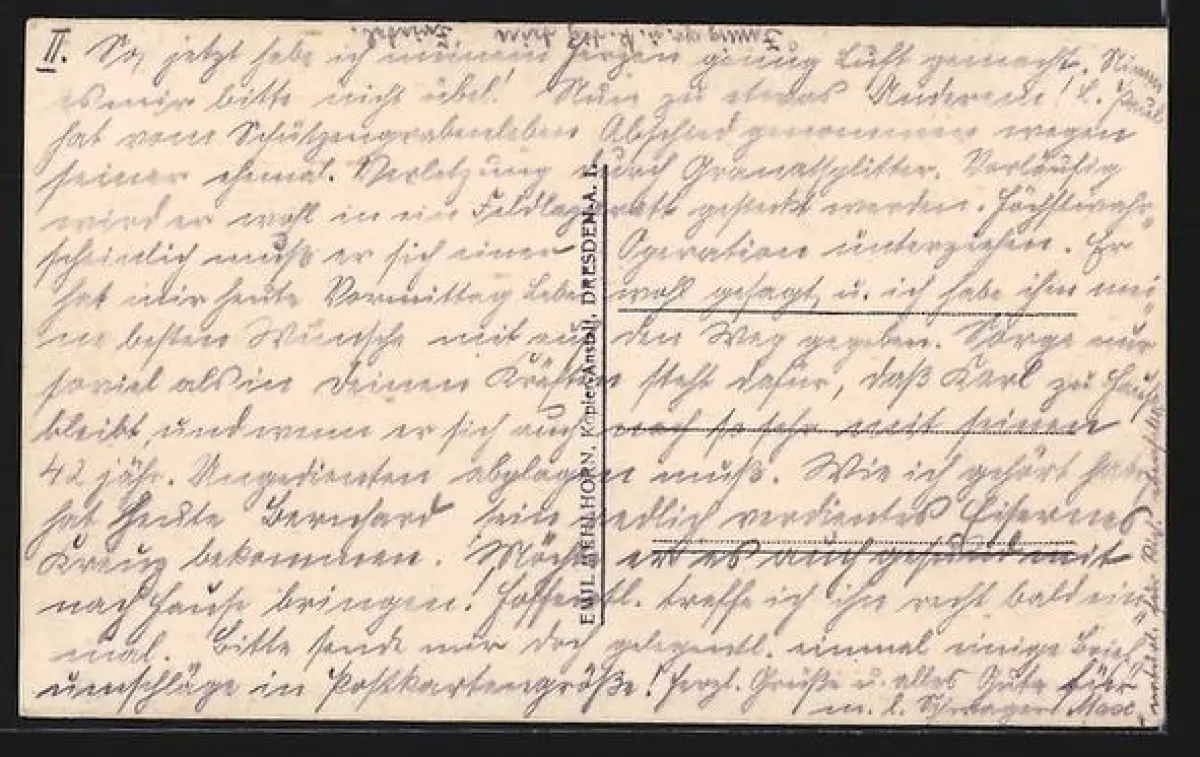 II. So, jetzt habe ich meinem Herzen genug Luft gemacht. Nimm
es mir bitte nicht übel! Nun zu etwas Anderem! L. Paul
hat vom Schützengrabenleben Abschied genommen wegen
seiner ehemal. Verletzung durch Granatsplitter. Vorläufig
wird er wohl in ein Feldlazarett gesteckt werden. Höchstwahr-
scheinlich muß er sich einer Operation unterziehen. Er
hat mir heute Vormittag Lebewohl gesagt, u. ich habe ihm mei-
ne besten Wünsche mit auf den Weg gegeben. Sorge nur
soviel als in Deinen Kräften steht dafür, daß Karl zu Hause
bleibt und wenn er sich auch noch so sehr mit seinen
42 jähr. Ungedienten abplagen muß. Wie ich gehört habe,
hat heute Bernhard sein redlich verdientes Eisernes
Kreuz bekommen. Möcht er es auch gesund mit
nach Hause bringen! Hoffentl. treffe ich ihn recht bald ein-
mal. Bitte sende mir doch gelegentl. einmal einige Brief-
umschläge in Postkartengröße! Herzl. Grüße u. alles Gute für
m. l. Schwager Max
EMIL MEHLHORN, Kopier-Anstalt, DRESDEN-A. 1.